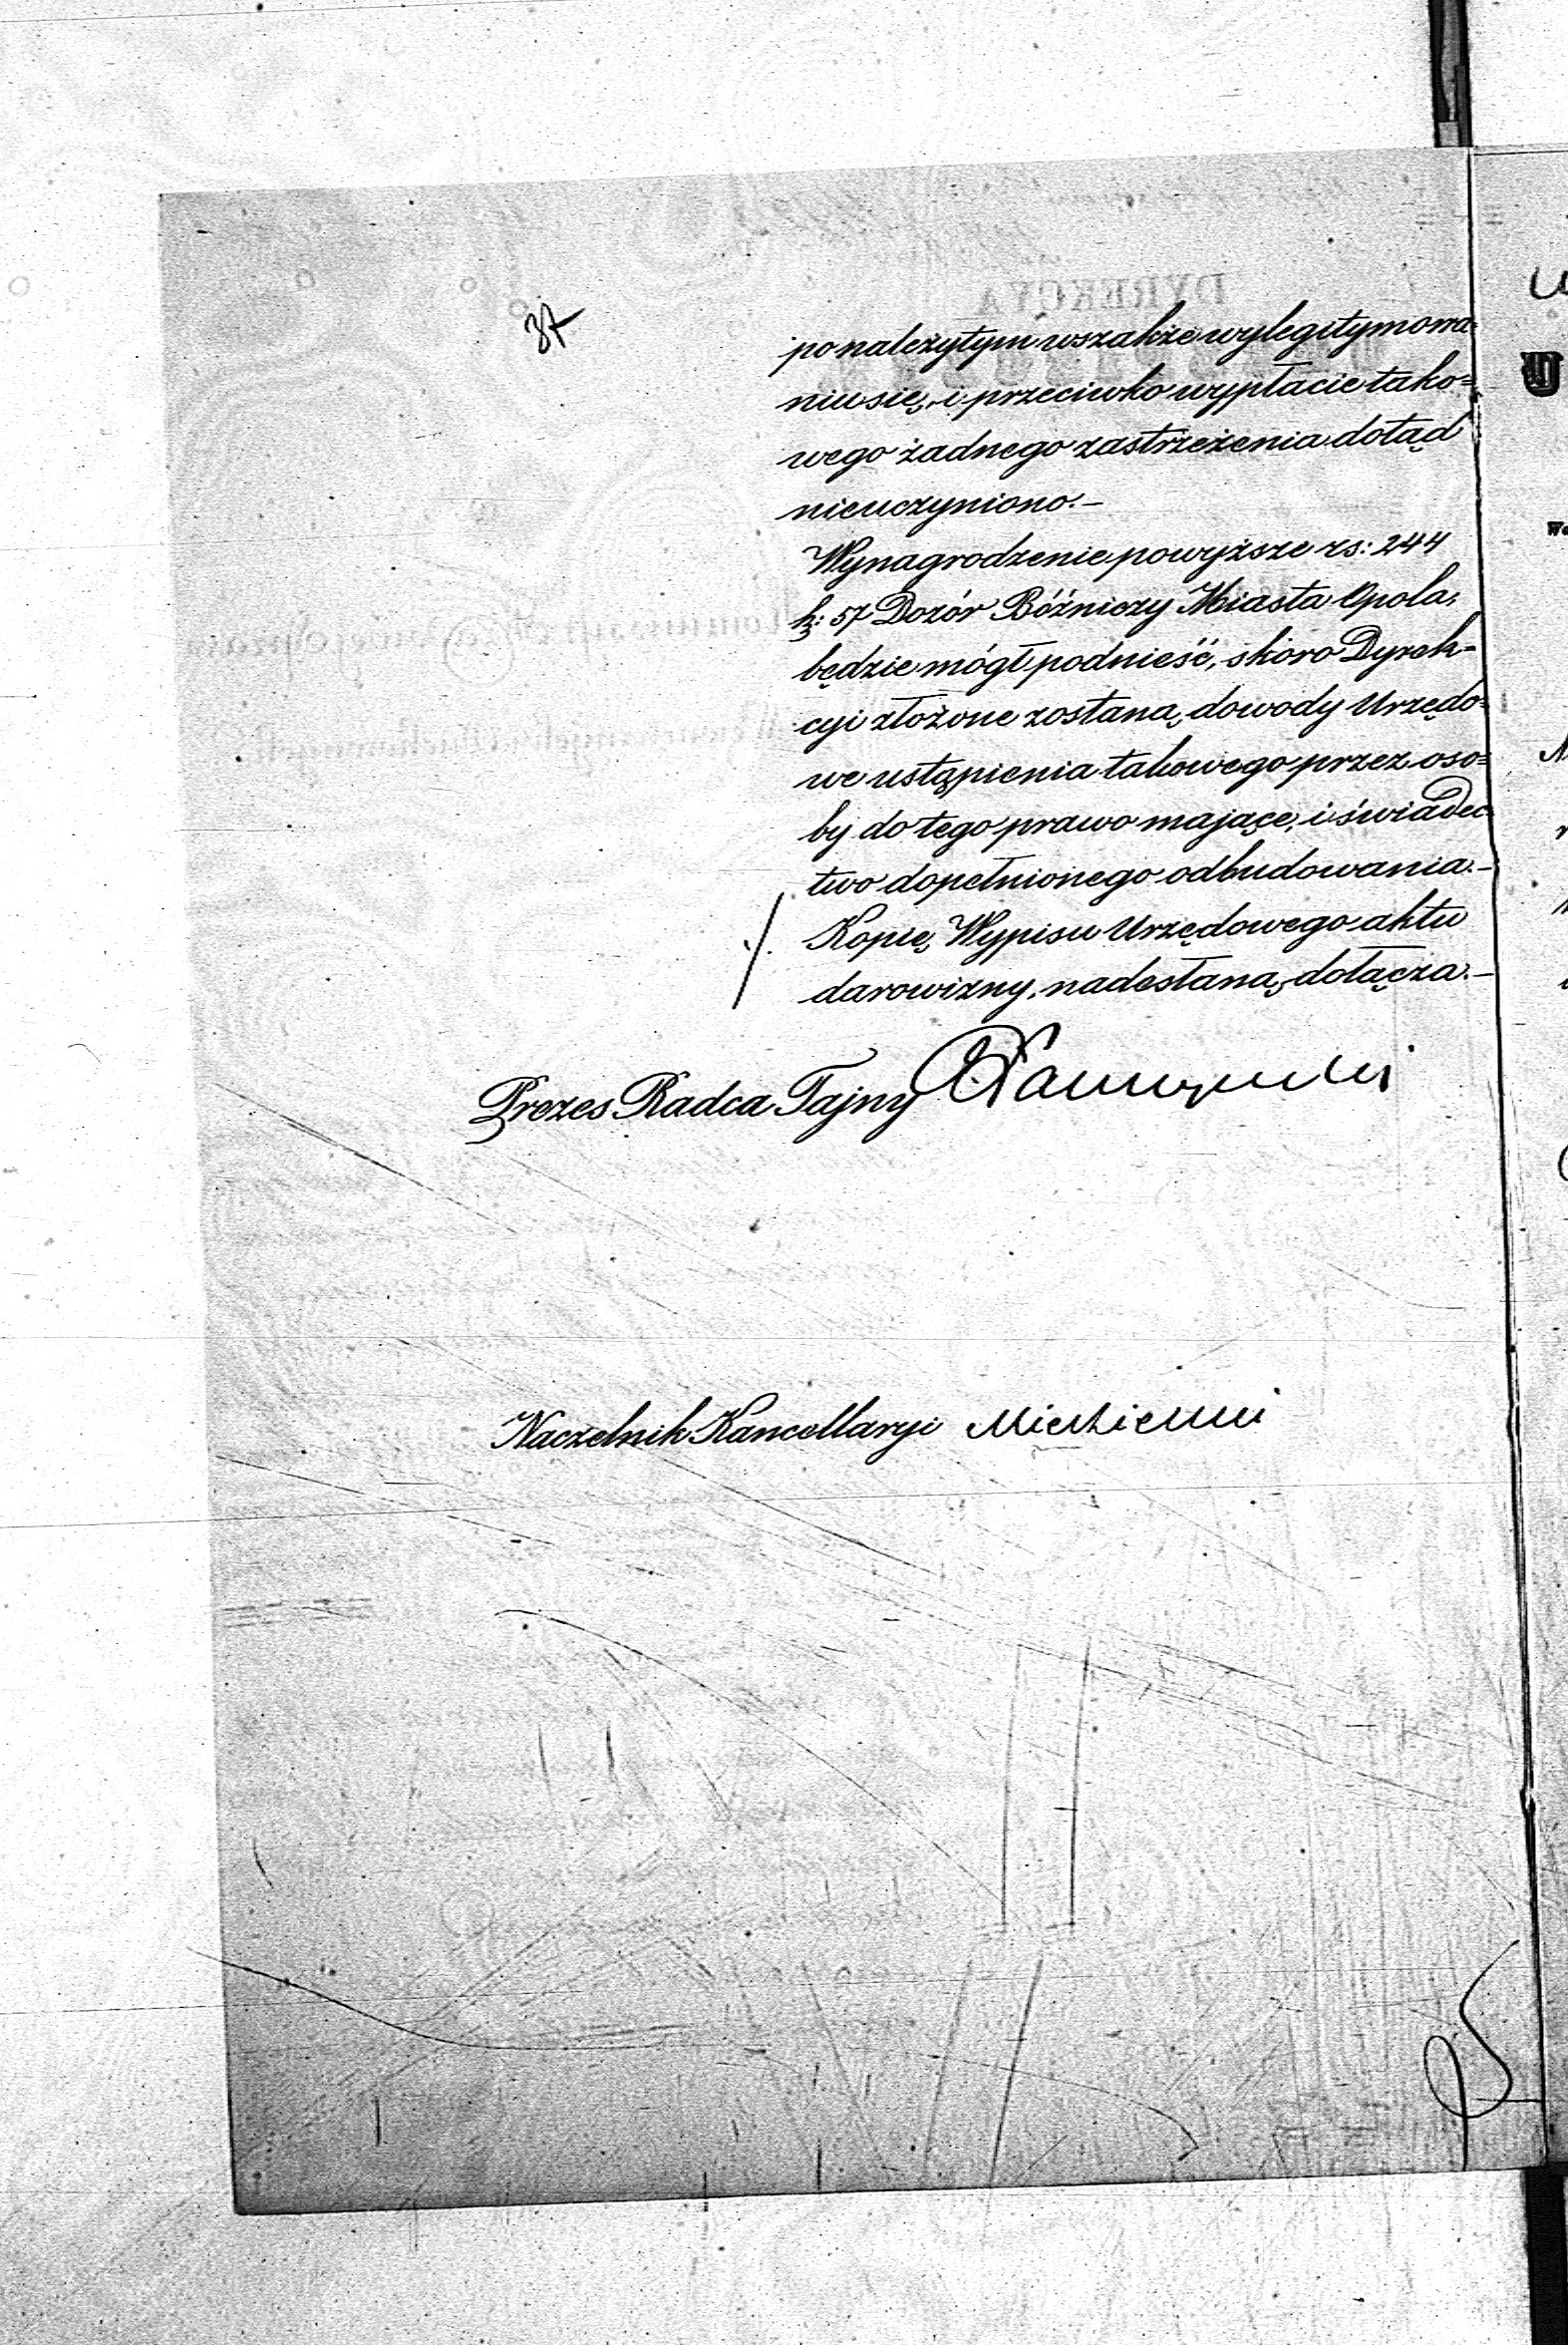 37
po należytym wszakże wylegitymowa=
niu się, i przeciwko wypłacie tako=
wego żadnego zastrzeżenia dotąd
nieuczyniono.—
Wynagrodzenie powyższe rs: 244
k: 57 Dozór Bóźniczy Miasta Opola,
będzie mógł podnieść, skoro Dyrek=
cyi złożone zostaną, dowody Urzędo=
we ustąpienia takowego przez oso=
by do tego prawo mające, i świadec=
two dopełnionego odbudowania.—
./. Kopię Wypisu Urzędowego aktu
darowizny, nadesłaną, dołącza.—
Prezes Radca Tajny
Naczelnik Kancellaryi